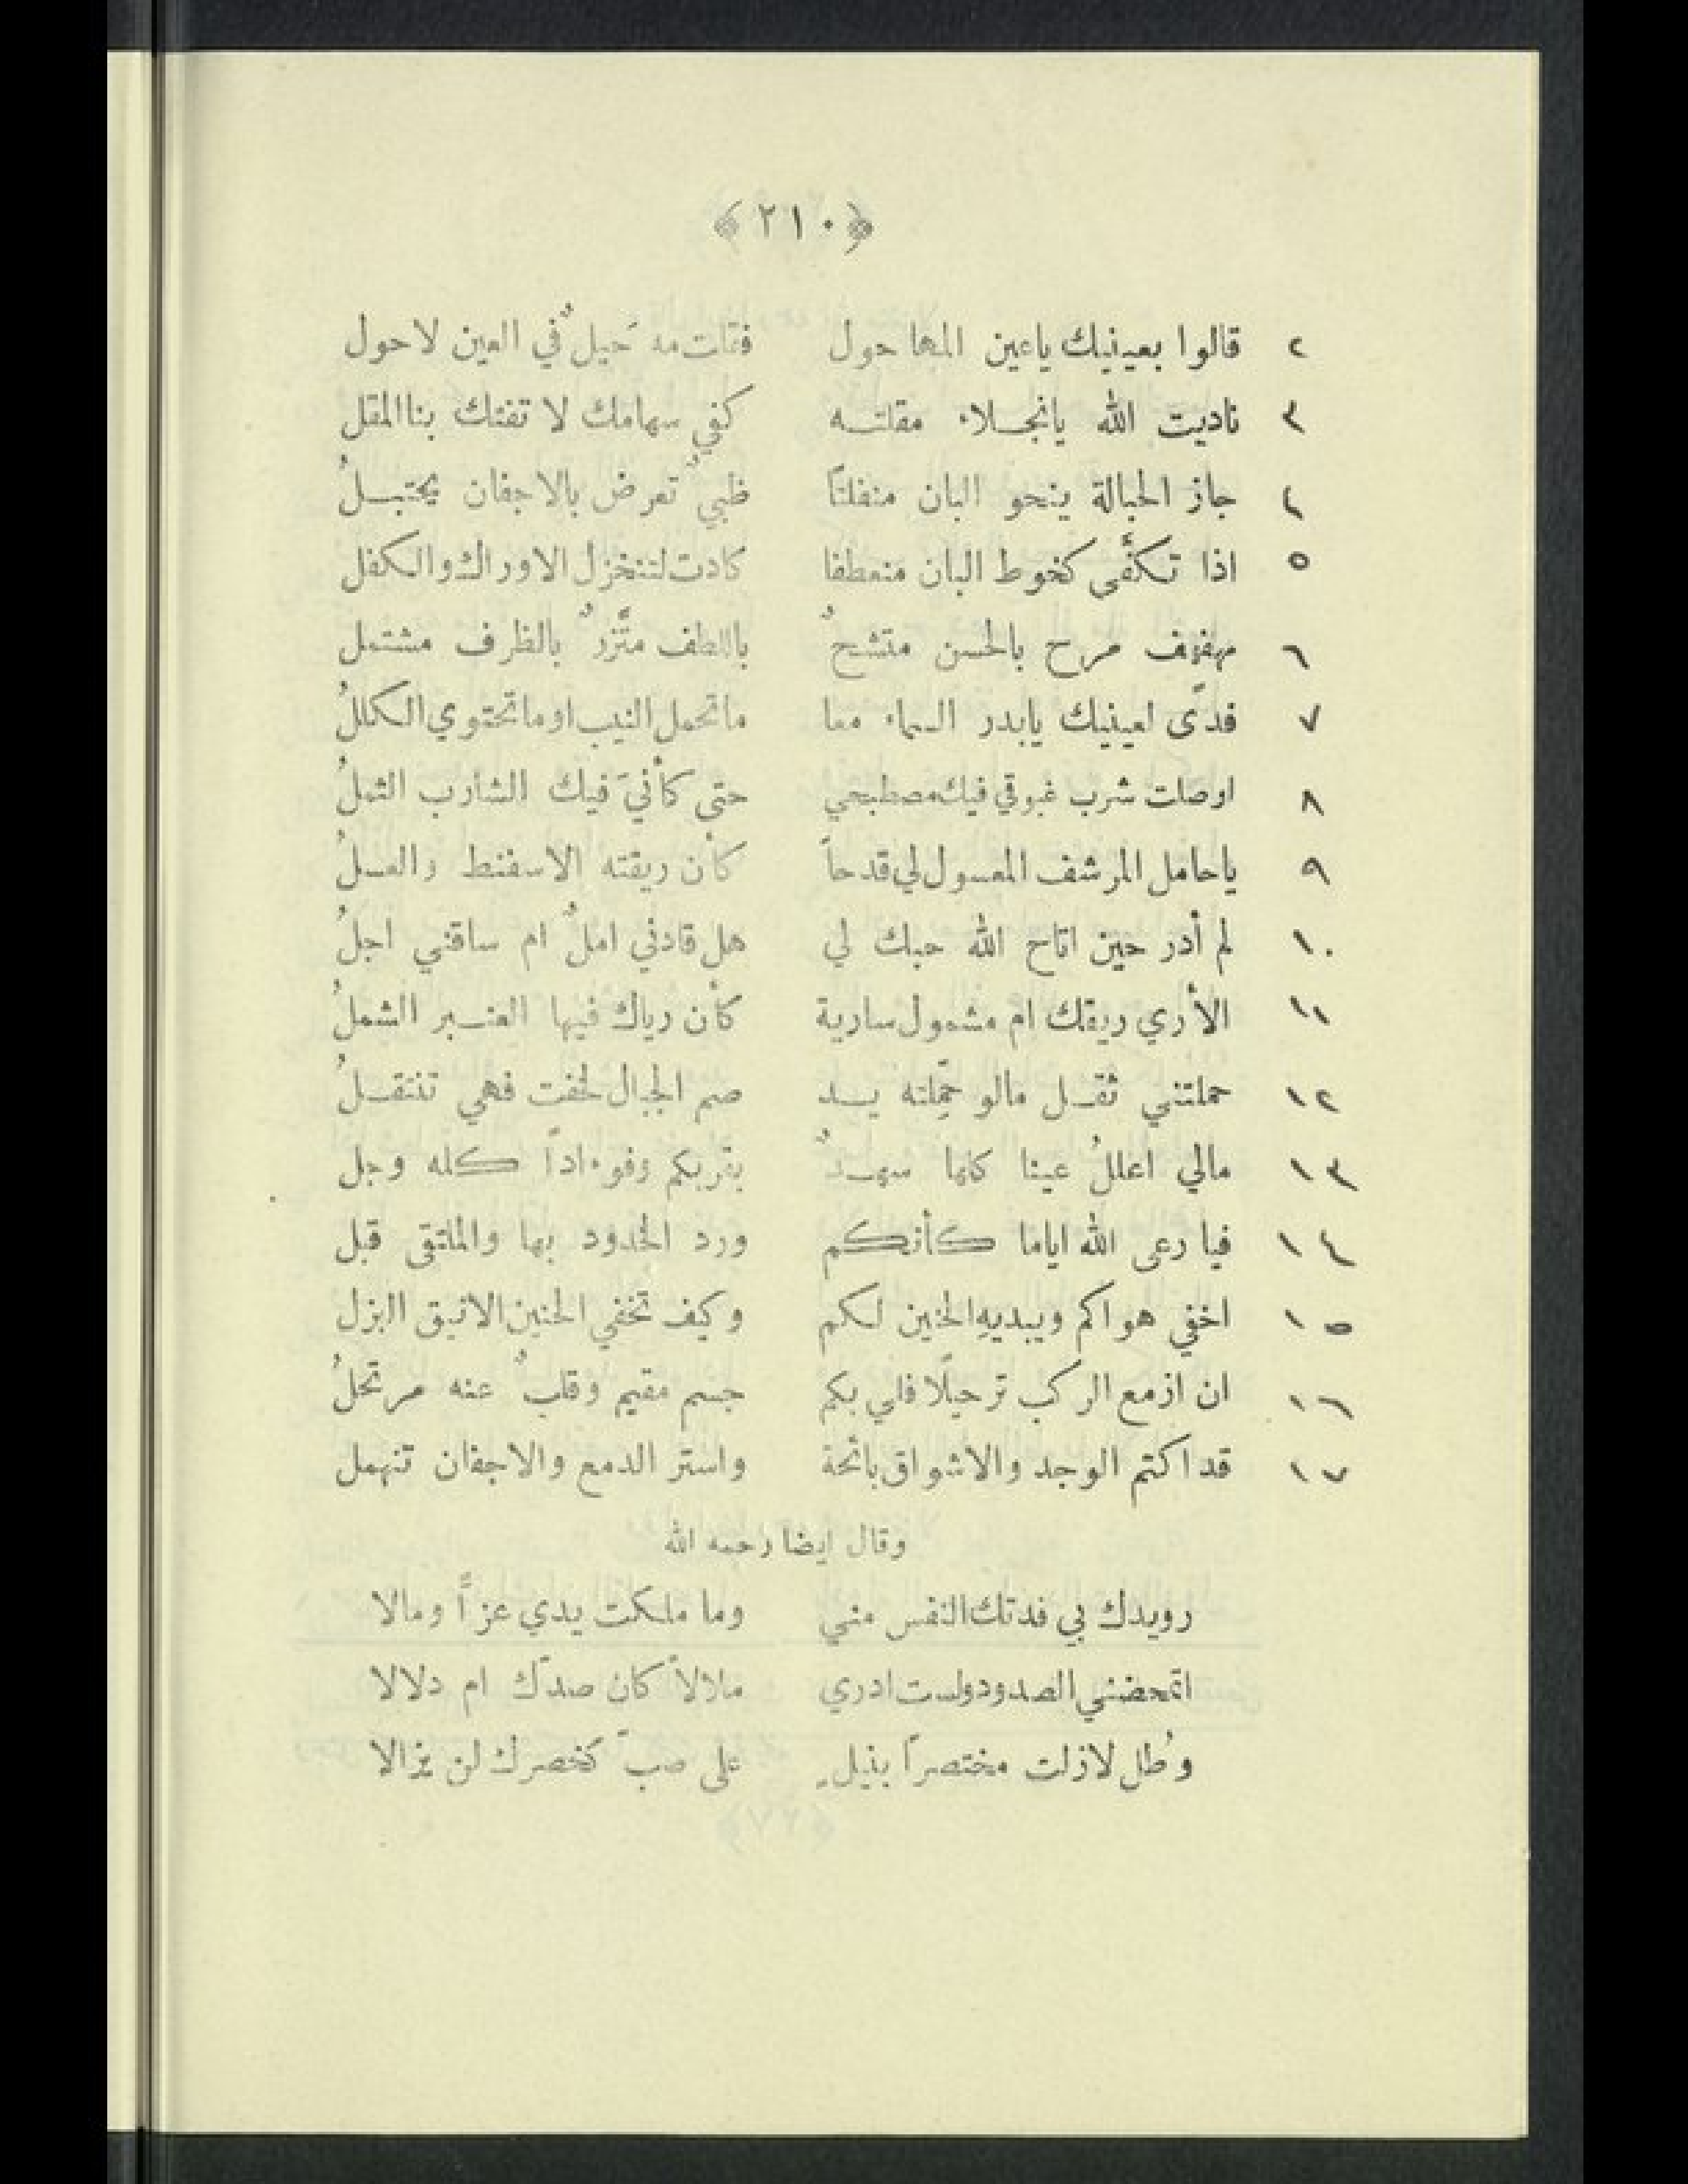 ﴿٢١٠﴾
٢ قالوا بعينيك ياعين المها حول فقلت مه حَيلٌ في العين لاحول
٣ ناديت الله يانجلاء مقلته كفي سهامك لا تفتك بنا المقل
٤ جاز الحبالة ينحو البان منفلتاً ظبيٌ تعرض بالاجفان يحتبلُ
٥ اذا تكفَّى كخوط البان منعطفا كادت لتنخزل الاوراك والكفل
٦ مهفهف مرح بالحسن متشحٌ باللطف متَّزرٌ بالظرف مشتمل
٧ فدّى لعينيك يابدر السماء معا ماتحمل النيب او ماتحتوي الكللُ
٨ اوصلت شرب غبوقي فيك مصطبحي حتى كأنيَ فيك الشارب الثملُ
٩ ياحامل المرشف المعسول لي قدحاً كأن ريقته الاسفنط والعسلُ
١٠ لم أدر حين اتاح الله حبك لي هل قادني املٌ ام ساقني اجلُ
١١ الأري ريقك ام مشمول سارية كأن رياك فيها العنبر الشملُ
١٢ حملتني ثقل مالو حمِّلته يد صم الجبال لخفت فهي تنتقلُ
١٣ مالي اعللُ عينا كلها سهدٌ بقربكم وفوءاداً كله وجل
١٤ فيا رعى الله اياما كأنكم ورد الخدود بها والملتقى قبل
١٥ اخفي هواكم ويبديهِ الحنين لكم وكيف تخفي الحنين الانيق البزل
١٦ ان ازمع الركب ترحيلًا فلي بكم جسم مقيم وقلبٌ عنه مرتحلُ
١٧ قد اكتم الوجد والاشواق بائحة واستر الدمع والاجفان تنهمل
وقال ايضا رحمه الله
رويدك بي فدتك النفس مني وما ملكت يدي عزاً ومالا
اتمحضني الصدود ولست ادري ملالاً كان صدّك ام دلالا
وطُل لازلت مختصراً بنيلٍ على صبّ كخصرك لن يزالا